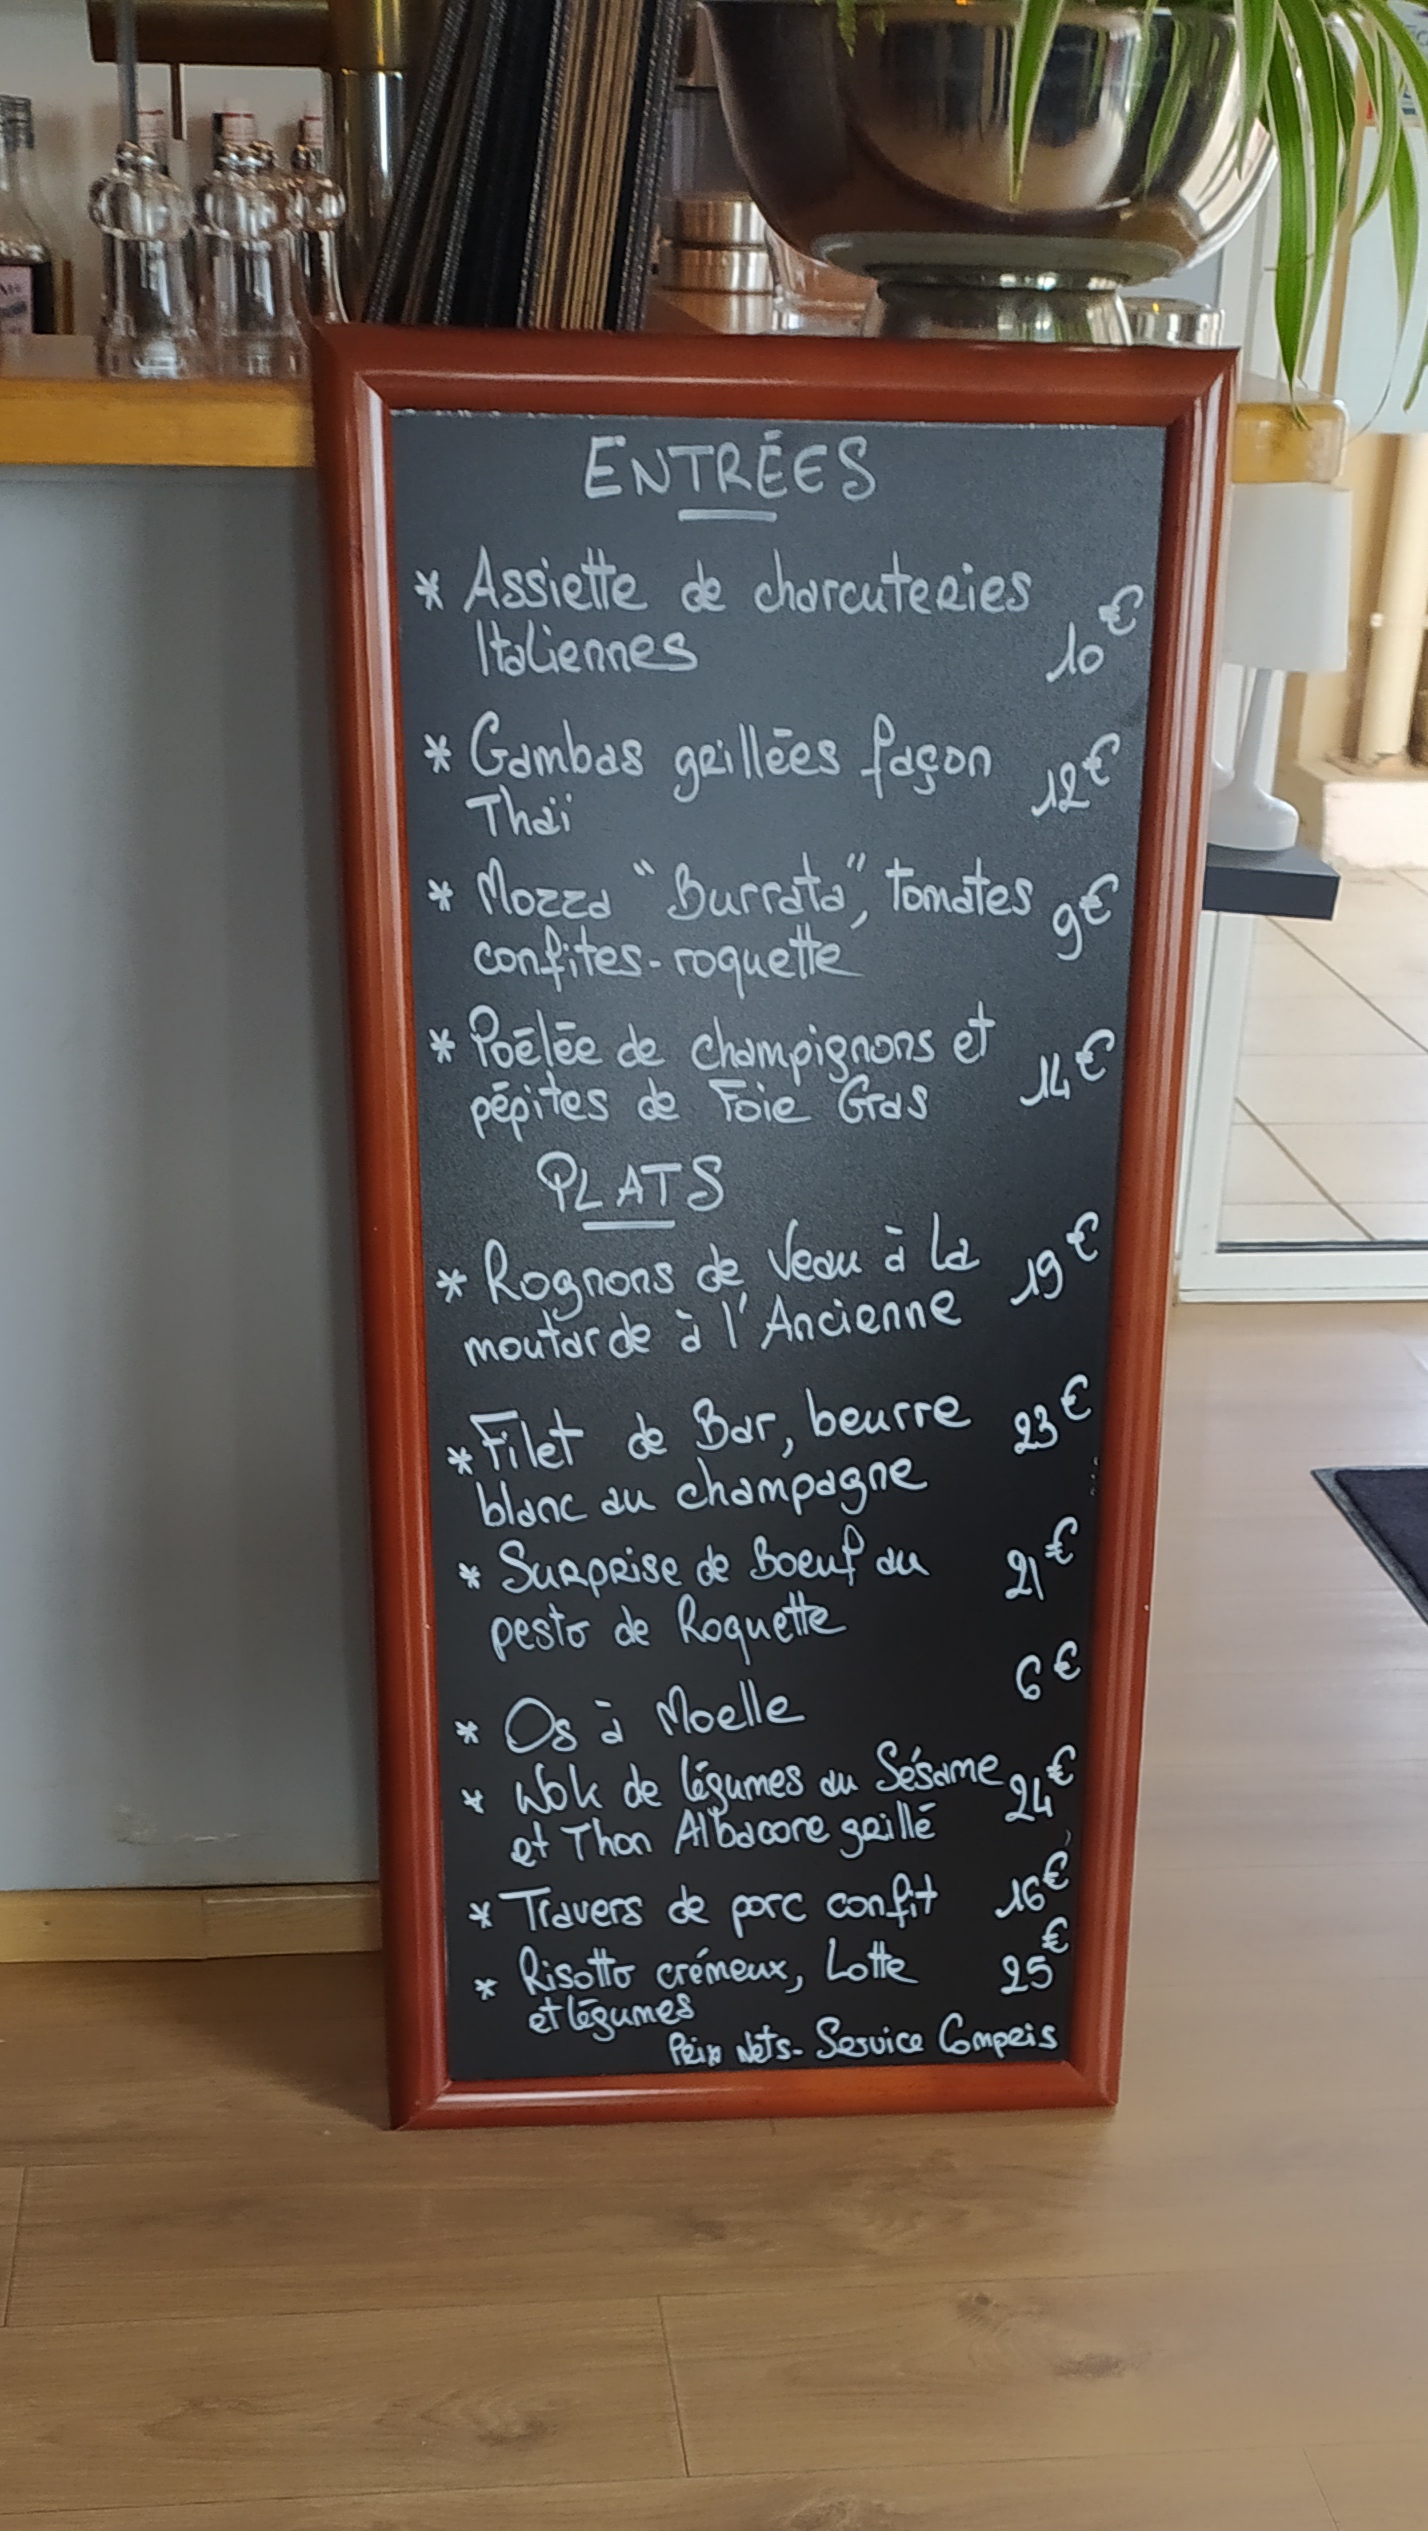 ENTRÉES
* Assiette de charcuteries
Italiennes 10€
* Gambas grillées façon
Thaï 12€
* Mozza "Burrata", tomates
confites-roquette 9€
* Poêlée de champignons et
pépites de Foie Gras 14€
PLATS
* Rognons de Veau à la
moutarde à l'Ancienne 19€
* Filet de Bar, beurre 23€
blanc au champagne
* Surprise de Boeuf au 21€
pesto de Roquette
* Os à Moelle 6€
* Wok de légumes au Sésame 24€
et Thon Albacore grillé
* Travers de porc confit 16€
* Risotto crémeux, Lotte 25€
et légumes
Prix Nets - Service Compris